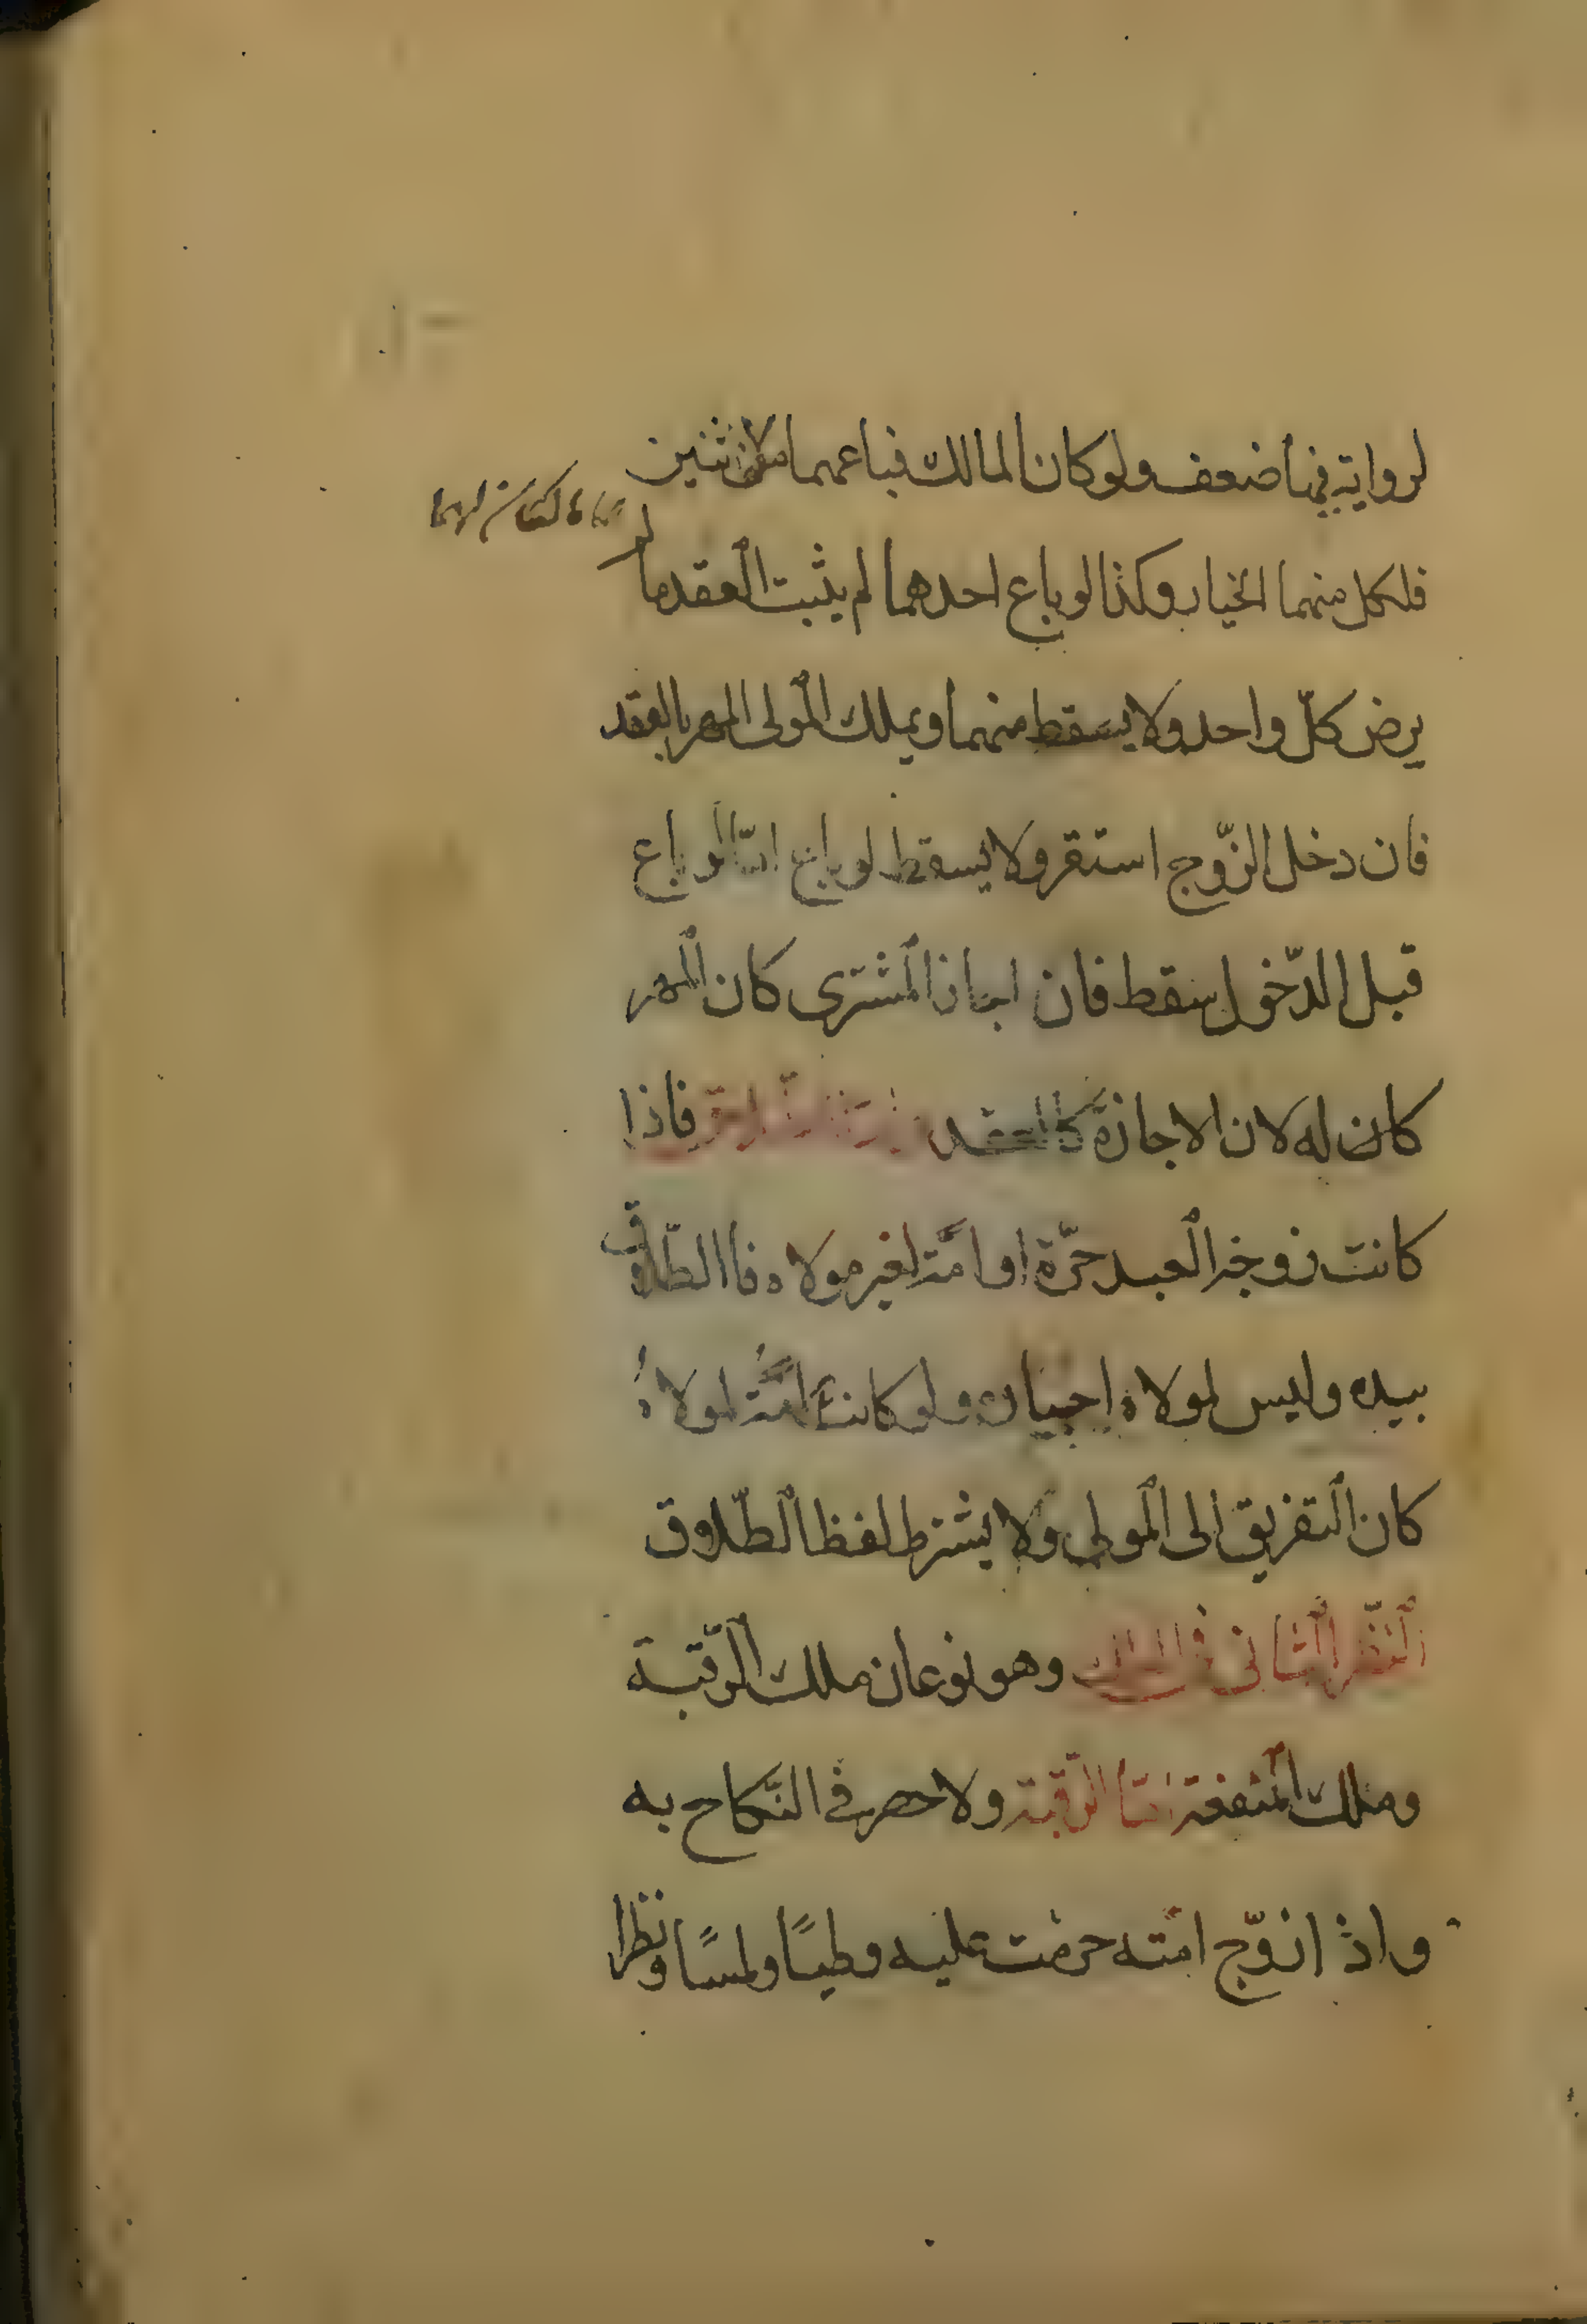 لرواية فيها ضعف ولو كانا لمالك فباعهما لاثنين
فلكل منهما الخيار وكذا لو باع احدهما لم يثبت العقد ما لم
يرض كلّ واحد ولا يسقط منهما ويملك المولى المهر بالعقد
فان دخل الزّوج استقر ولا يسقط لو باع امّا لو باع
قبل الدّخول سقط فان اجاز المشترى كان المهر
كان له لان الاجازة كالعقد الطلاق فاذا
كانت زوجة العبد حرّة او امة لغير مولاه فاالطّلاق
بيده وليس لمولاه اجباره ولو كانت امة لمولاه
كان التفريق الى المولى ولا يشترط لفظ الطّلاق
النّظر الثانى فى الملك وهو نوعان ملك الرّقبة
وملك المنفعة امّا الرّقبة ولا حصر فى النّكاح به
واذا زوّج امته حرمت عليه وطيًا ولمسًا ونظرا